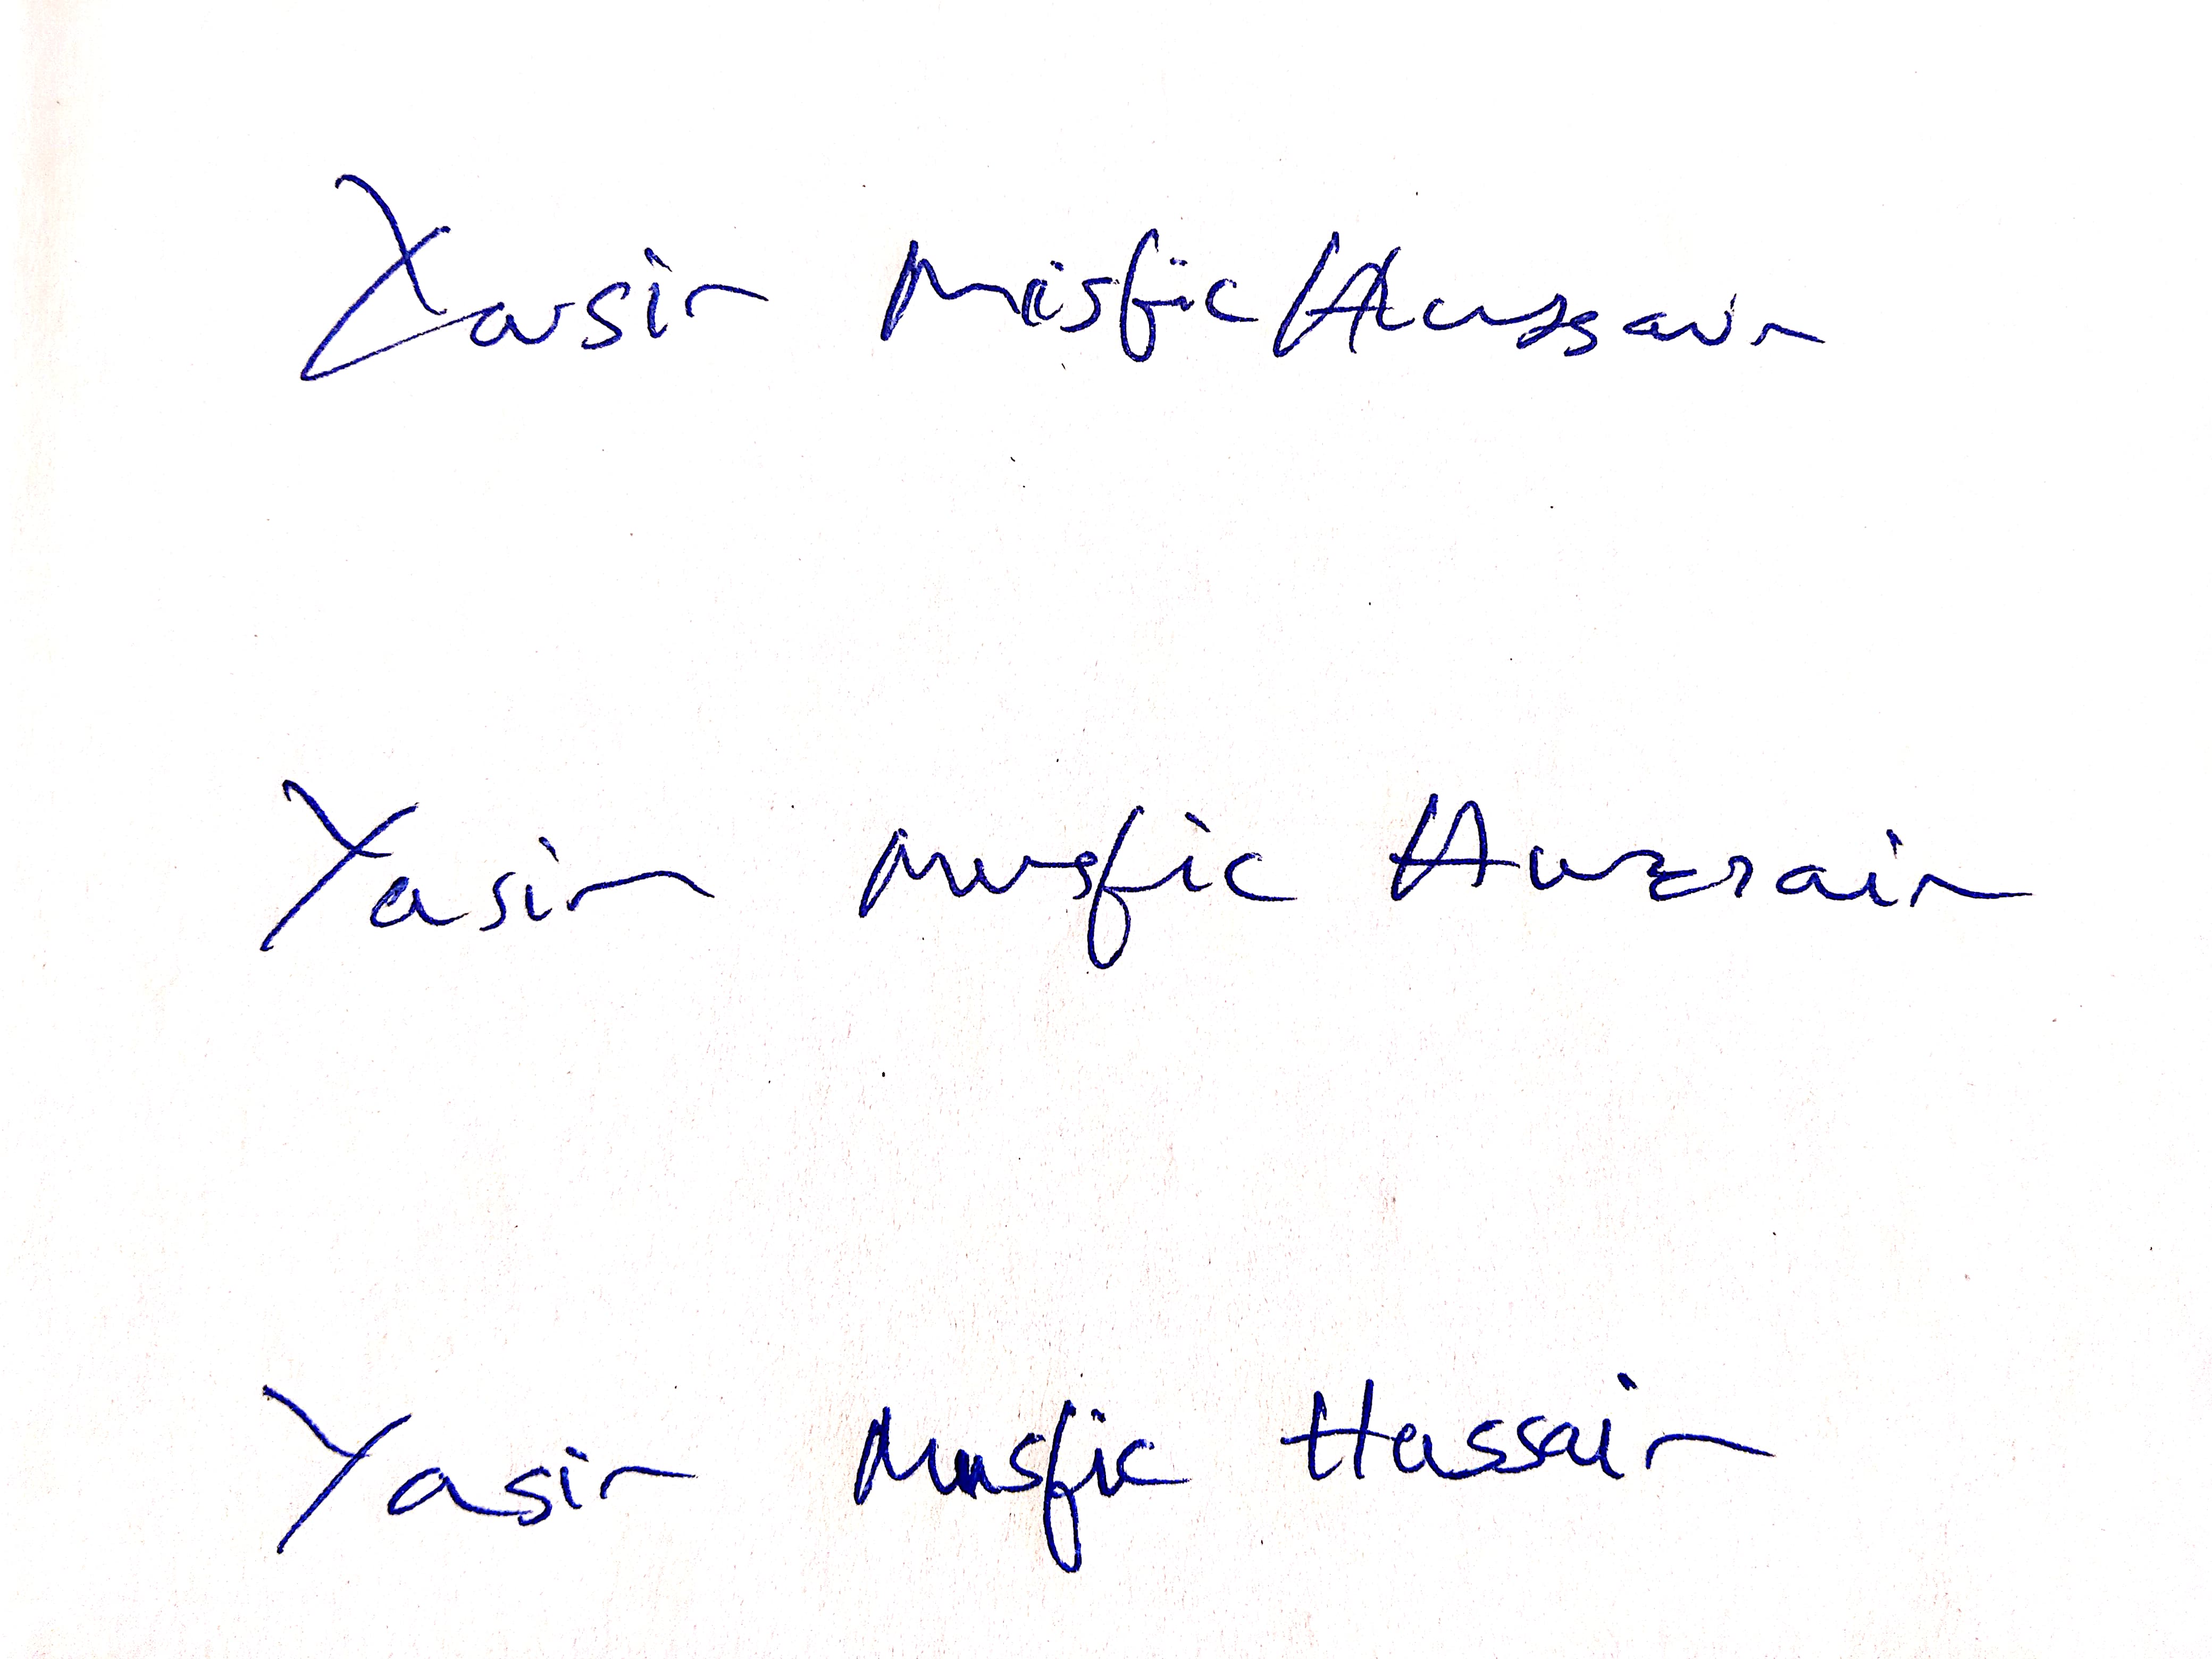 Yasir Musfic Hussain
Yasir Musfic Hussain
Yasir Musfic Hussain